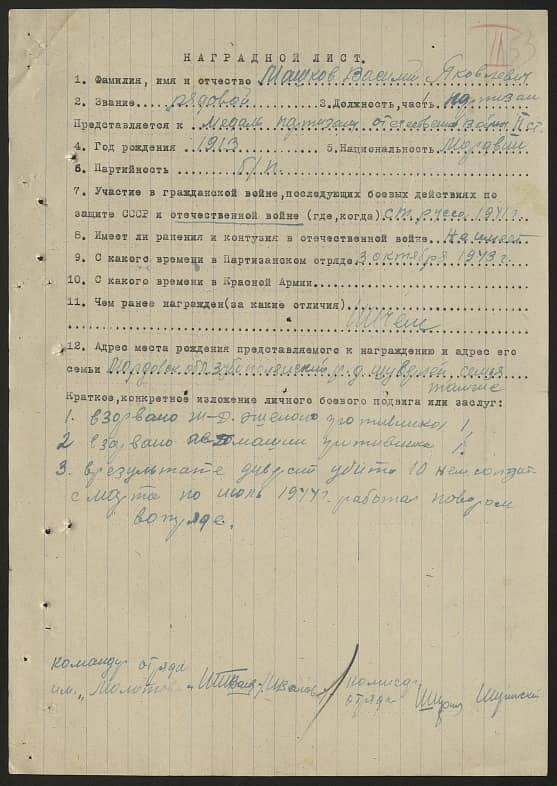 II 53
НАГРАДНОЙ ЛИСТ.
1. Фамилия, имя и отчество Машков Василий Яковлевич
2. Звание рядовой 3. Должность, часть партизан
Представляется к медаль партизан отечествен войны II ст.
4. Год рождения 1913 5. Национальность Мордвин
6. Партийность б/п.
7. Участие в гражданской войне, последующих боевых действиях по
защите СССР и отечественной войне (где, когда) с 1941 г.
8. Имеет ли ранения и контузия в отечественной войне. не имеет
9. С какого времени в Партизанском отряде. 3 октября 1943 г.
10. С какого времени в Красной Армии
11. Чем ранее награжден (за какие отличия)
12. Адрес места рождения представляемого к награждению и адрес его
семьи Мордовск обл Зубополянский р. д. семья
Краткое, конкретное изложение личного боевого подвига или заслуг:
1. взорвано ж-д. эшелона противника 1
2 взорвано автомашин противника 1.
3. в результате диверсий убито 10 нем. солдат.
с марта по июль 1944 г. работал поваром
в отряде.
командир отряда
им. "Молотова" /Иванов/
комиссар
отряда